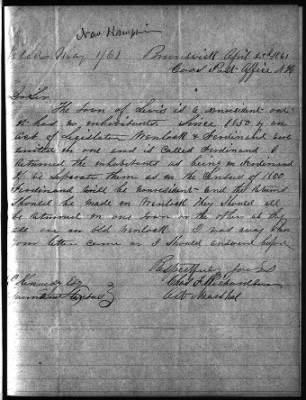 New Hampshire
May 1/61
Brunswick April 23d 1861
Coos Post Office N H
Dear Sir
The Town of Lewis is a nonresident one
it has no inhabitants since 1850 by an
act of Legislature Wenlock & Ferdinand were
united in one and is called Ferdinand I
returned the inhabitants as being in Ferdinand
to be separate them as in the Census of 1850
Ferdinand will be nonresident and the returns
should be made on Wenlock they should all
be returned in one town or the other as they
all are in old Wenlock. I was away when
your letter came or I should answered before
Respectfully yours
Kennedy Esq
Chas Richardson
Ast Marshal